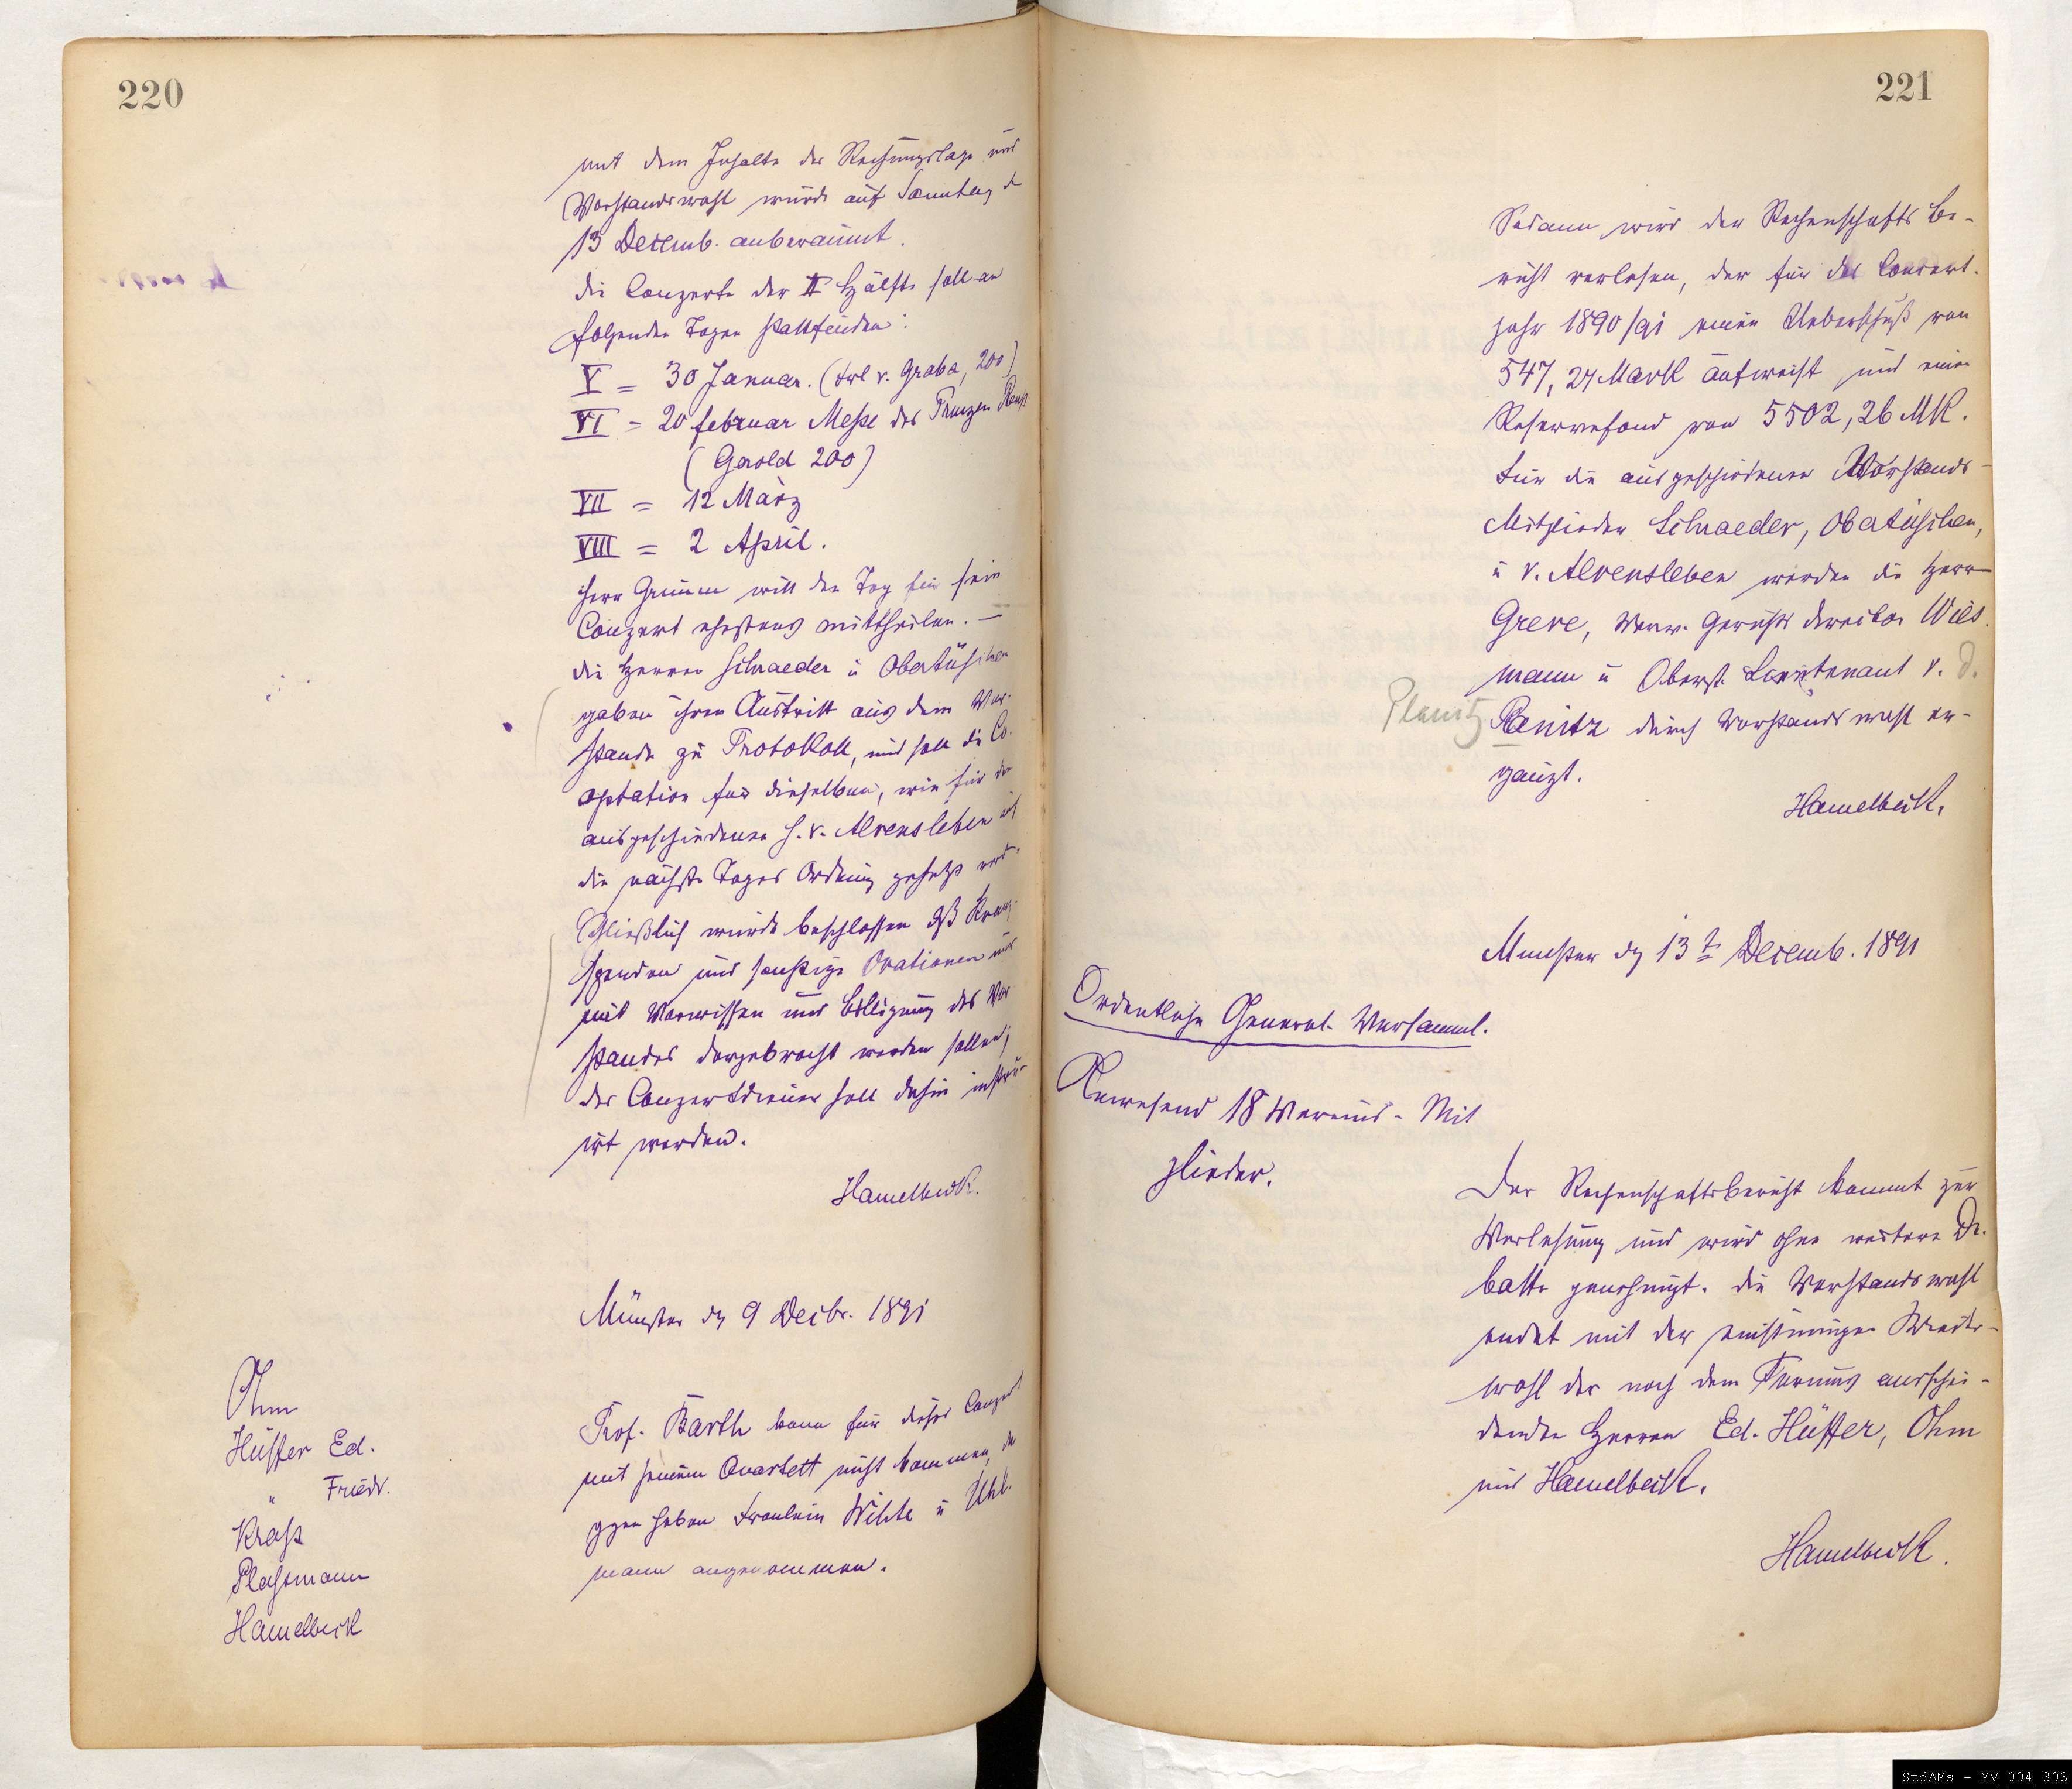 220
mit dem Inhalte der Rechnungslage und
Vorstandswahl wurde auf Sonntag d
13 Decemb. anberaumt.
die Conzerte der II Hälfte soll an
folgenden Tagen stattfinden:
V = 30 Januar. (Frl v. Grabo, 200)
VI = 20 februar Messe des Prinzen Reuß
(Gerold 200)
VII = 12 März
VIII = 2 April.
Herr Grimm will den Tag für sein
Conzert ehestens mittheilen. —
die Herren Schraeder u Obertüschen
gaben ihren Austritt aus dem Vor-
stande zu Protokoll, und soll die Co-
optation für dieselben, wie für den
ausgeschiedenen H. v. Alvensleben auf
die nächste Tages Ordnung gesetzt werd.
Schließlich wurde beschlossen daß Kranz-
spenden und sonstige Ovationen nur
mit Vorwissen und Billigung des Vor
standes dargebracht werden sollen;
der Conzertdiener soll dahin instru-
irt werden.
Hamelbeck.
Münster dz 9 Decbr. 1891
Ohm
Hüffer Ed.
" Friedr.
Krass
Plassmann
Hamelbeck
Prof. Barth kann für dieses Conzert
mit seinem Quartett nicht kommen, da
gegen haben Fraulein Witte u Uhl-
mann angenommen.
221
Sodann wird der Rechenschafts Be-
richt verlesen, der für das Concert-
jahr 1890/91 einen Ueberschuß von
547,27 Mark aufweist und einen
Reservefond von 5502,26 MK.
Für die ausgeschiedenen Vorstands-
Mitglieder Schraeder, Obertüschen,
u v. Alvensleben werden die Herrn
Greve, Verw. Gerichts direktor Wies
mann u Oberst Lieutenant v. d.
Planitz Planitz durch Vorstandswahl er-
gänzt.
Hamelbeck.
Münster dz 13t Decemb. 1891
Ordentliche General-Versamml.
Anwesend 18 Vereins-Mit
glieder.
Der Rechenschaftsbericht kommt zur
Verlesung und wird ohne weitere De-
batte genehmigt. die Vorstandswahl
endet mit der einstimmigen Wieder-
wahl der nach dem Turnus ausschei-
denden Herren Ed. Hüffer, Ohm
und Hamelbeck.
Hamelbeck.
StdAMs - MV_004_303